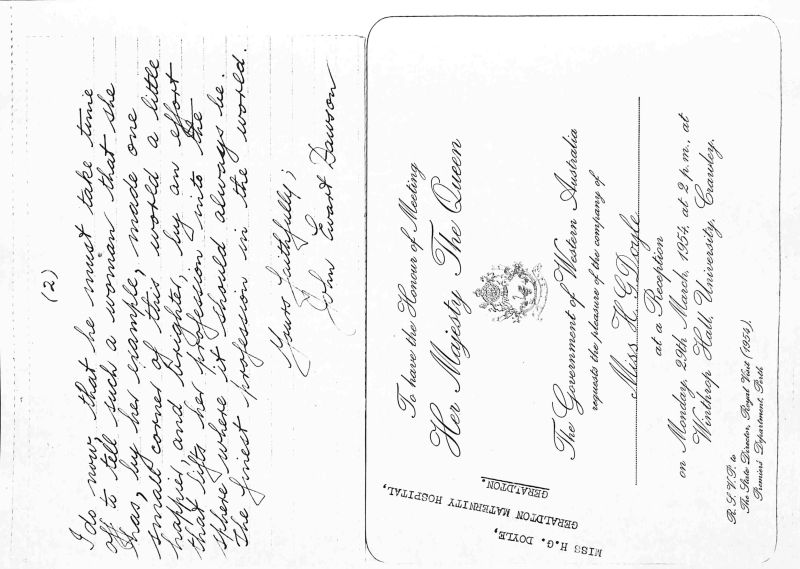 (2)
I do now, that he must take time
off to tell such a woman that she
has, by her example, made one
small corner of this world a little
happier, and brighter, by an effort
that lifts her profession into the
sphere where it should always be.
The finest profession in the world.
Yours faithfully;
John Ewart Dawson
To have the Honour of Meeting
Her Majesty The Queen
The Government of Western Australia
requests the pleasure of the company of
Miss H. G. Doyle
at a Reception
on Monday, 29th March, 1954, at 2 p.m., at
Winthrop Hall, University, Crawley.
R.S.V.P. to
The State Director, Royal Visit (1954),
Premier's Department, Perth
MISS H.G. DOYLE,
GERALDTON MATERNITY HOSPITAL,
GERALDTON.